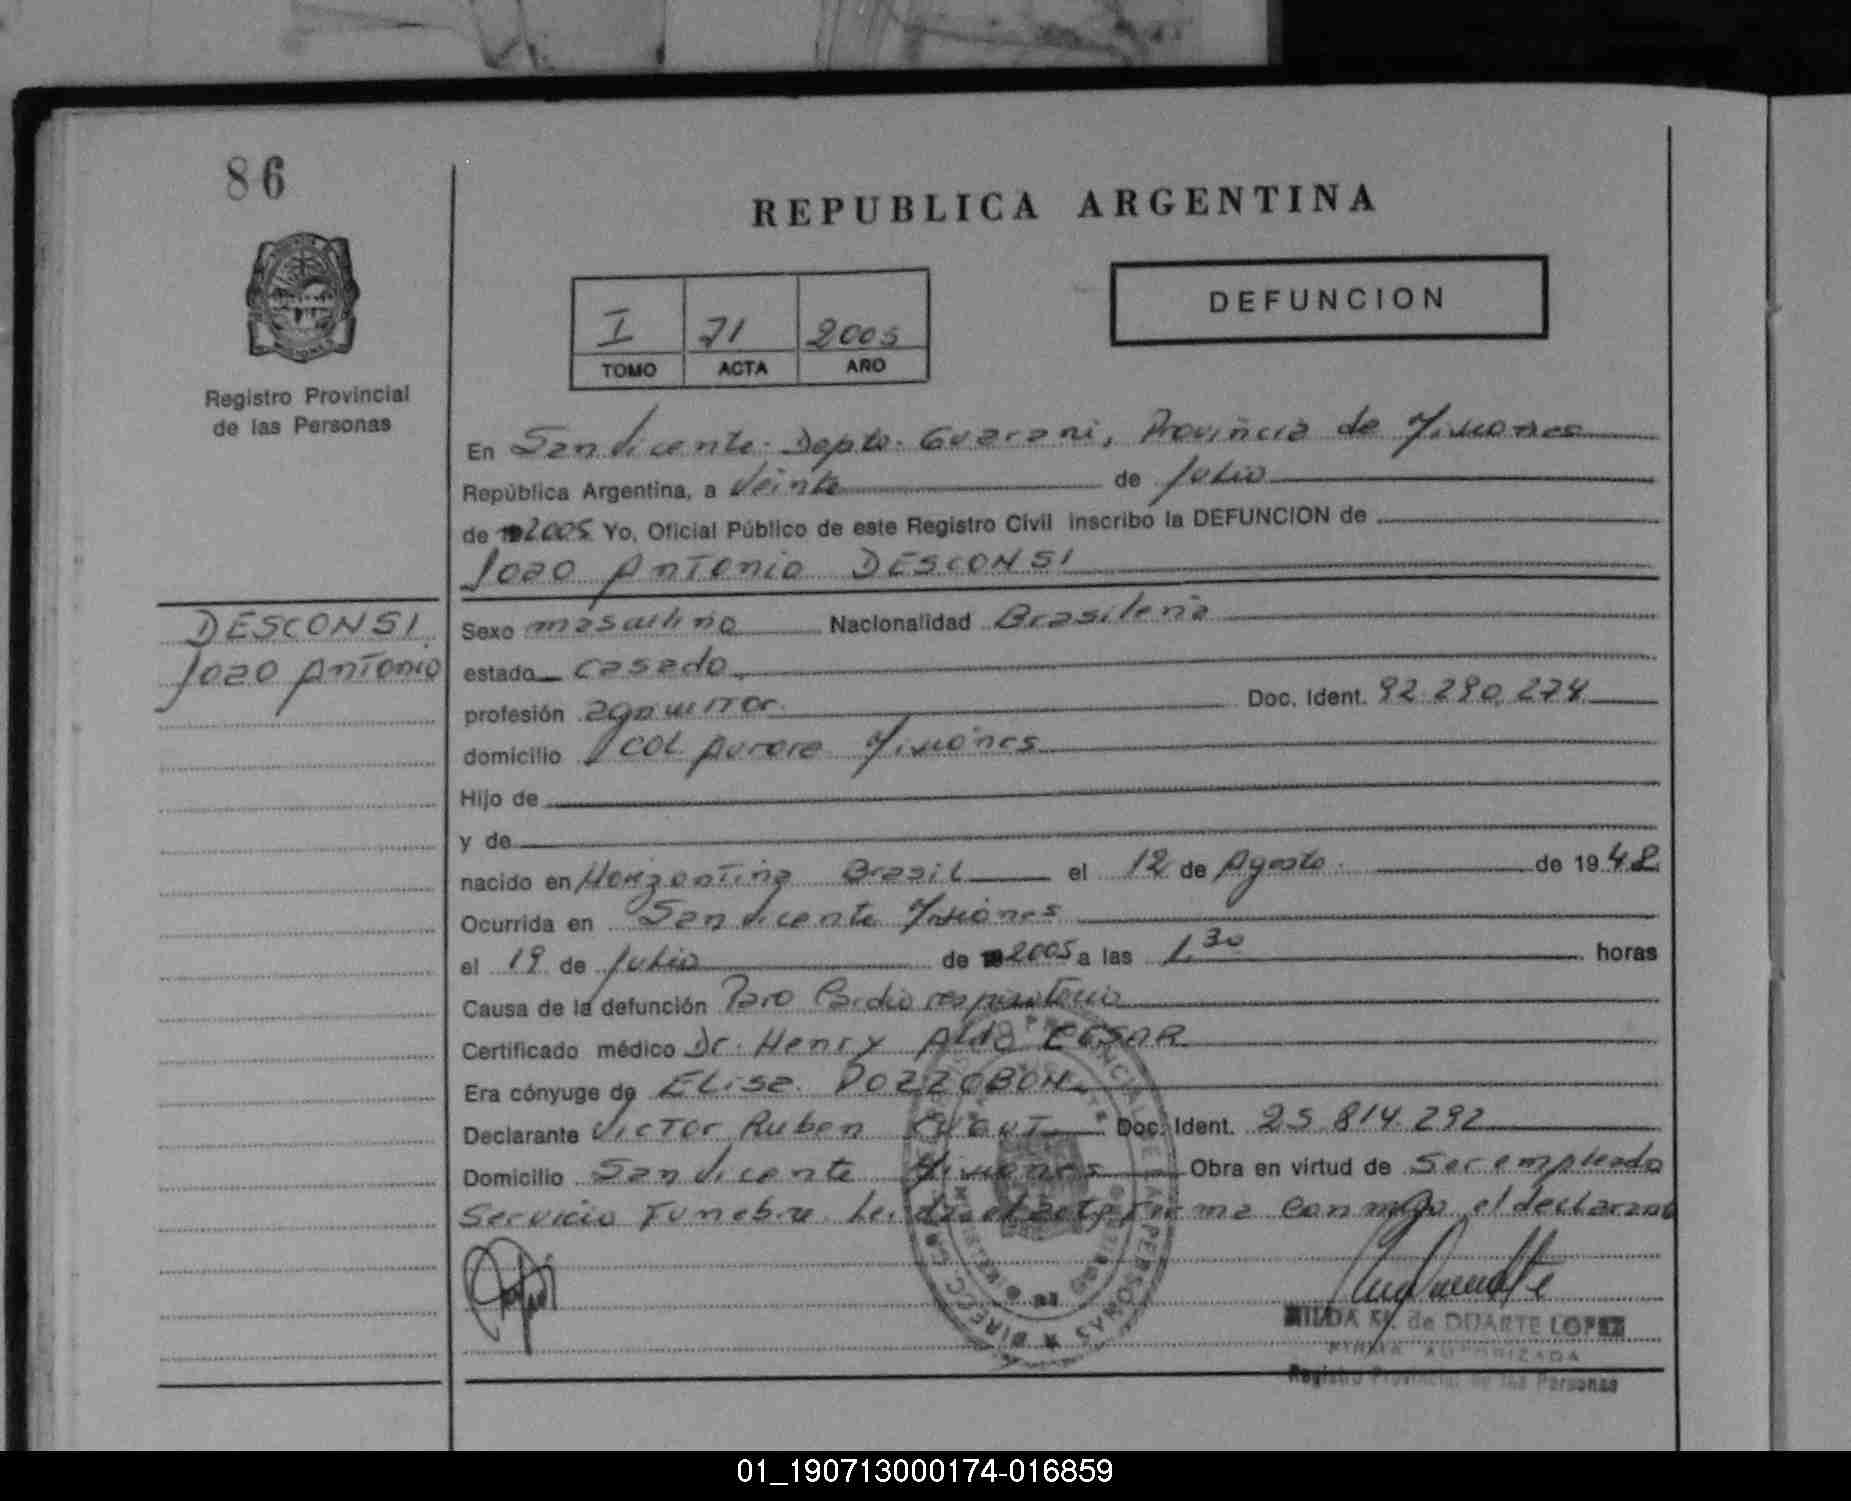 86
REPUBLICA ARGENTINA
DEFUNCION
I 71 2005
TOMO ACTA AÑO
Registro Provincial
de las Personas
En San Vicente. Depto. Guarani, Provincia de Misiones
República Argentina, a Veinte de Julio
de 2005 Yo, Oficial Público de este Registro Civil inscribo la DEFUNCION de
Joao Antonio DESCONSI
DESCONSI
Joao Antonio
Sexo masculino Nacionalidad Brasileña
estado casado
profesión agricultor Doc. Ident. 92.290.274
domicilio Col. Aurora Misiones
Hijo de
y de
nacido en Horizontina Brasil el 12 de Agosto de 1948
Ocurrida en San Vicente Misiones
el 19 de Julio de 2005 a las 1,30 horas
Causa de la defunción Paro Cardio respiratorio
Certificado médico Dr. Henry Aldo CESAR
Era cónyuge de Elisa POZZOBON
Declarante Victor Ruben Doc. Ident. 25.814.292
Domicilio San Vicente Misiones Obra en virtud de Ser empleado
Servicio Funebre Leida el acta Firma Conmigo el declarante
HILDA K. de DUARTE LOPEZ
FIRMA AUTORIZADA
Registro Provincial de las Personas
01_190713000174-016859